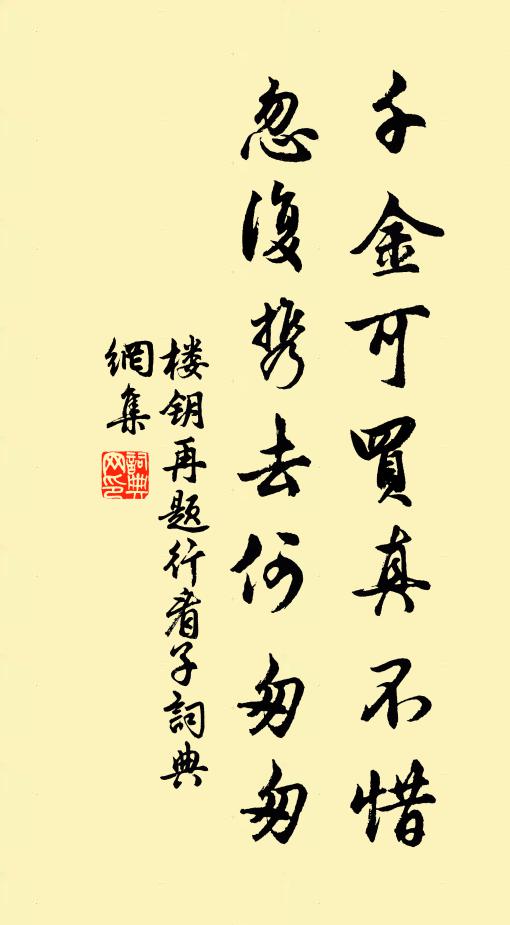 千金可買真不惜
忽復携去何匆匆
楼钥再题行看子詞典
網集
詞典
网